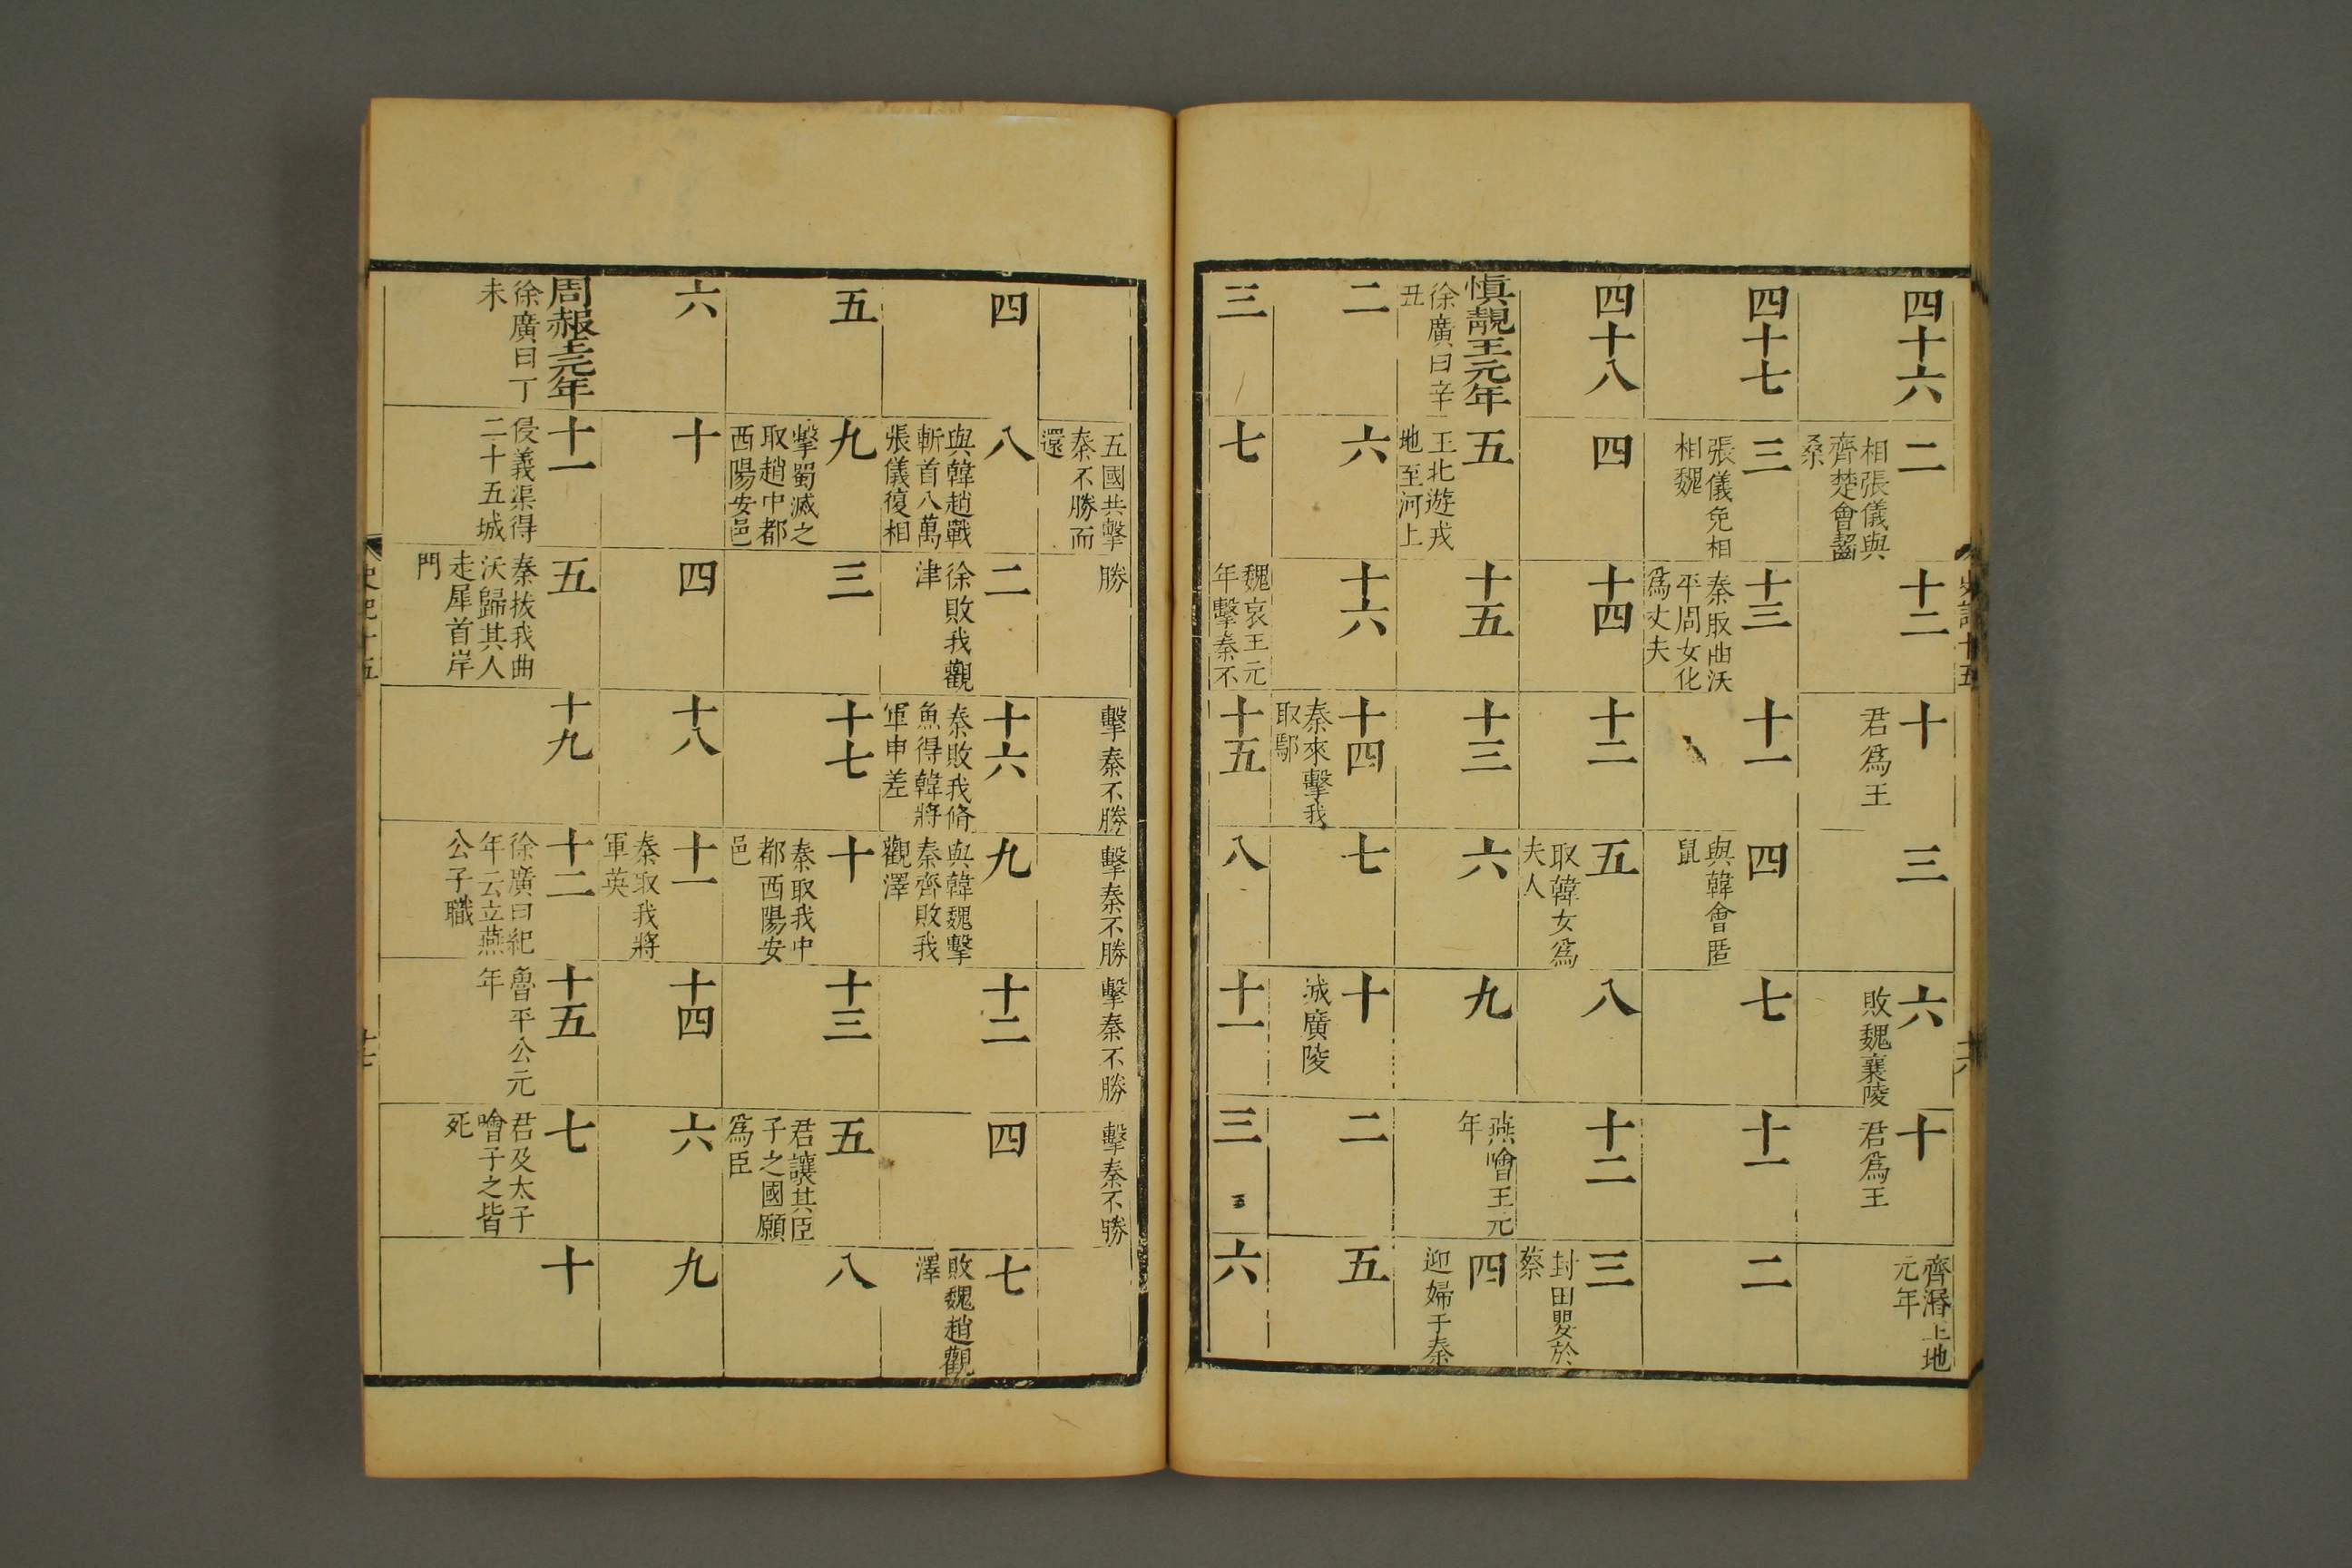 四十六
二
相張儀與
齊楚會齧
桑
十二
十
君爲王
三
六
敗魏襄陵
十
君爲王
齊湣王地
元年
四十七
三
張儀免相
相魏
十三
秦取曲沃
平周女化
爲丈夫
十一
四
與韓會區
鼠
七
十一
二
四十八
四
十四
十二
五
取韓女爲
夫人
八
十二
三
封田嬰於
蔡
慎靚王元年
徐廣曰辛
丑
五
王北遊戎
地至河上
十五
十三
六
九
燕噲王元
年
四
迎婦于秦
二
六
十六
十四
秦來擊我
取鄢
七
十
城廣陵
二
五
三
七
魏哀王元
年擊秦不
十五
八
十一
三
六
史記十五
十六
五國共擊
秦不勝而
還
勝
擊秦不勝
擊秦不勝
擊秦不勝
擊秦不勝
四
八
與韓趙戰
斬首八萬
張儀復相
二
徐敗我觀
津
十六
秦敗我脩
魚得韓將
軍申差
九
與韓魏擊
秦齊敗我
觀澤
十二
四
七
敗魏趙觀
澤
五
九
擊蜀滅之
取趙中都
西陽安邑
三
十七
十
秦取我中
都西陽安
邑
十三
五
君讓其臣
子之國願
爲臣
八
六
十
四
十八
十一
秦取我將
軍英
十四
六
九
周赧王元年
徐廣曰丁
未
十一
侵義渠得
二十五城
五
秦拔我曲
沃歸其人
走犀首岸
門
十九
十二
徐廣曰紀
年云立燕
公子職
十五
魯平公元
年
七
君及太子
噲子之皆
死
十
史記十五